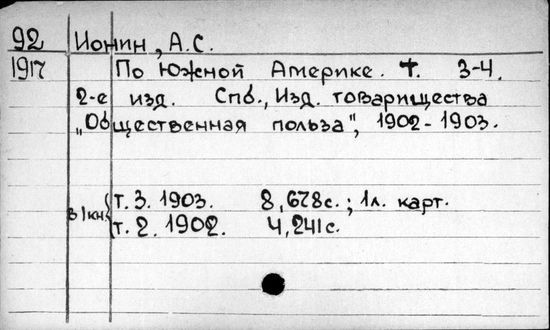 92 Ионин, А.С.
1917 По Южной Америке. т. 3-4.
2-е изд. Спб., Изд. товарищества
„Общественная польза", 1902-1903.
в 1 кн. { т. 3. 1903. 8, 678с.; 1л. карт.
т. 2. 1902. 4, 241с.